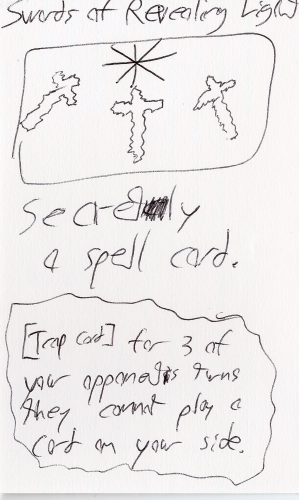 Swords of Revealing Light
Secretly
a spell card.
[Trap Card] for 3 of
your opponents turns
they cannot play a
card on your side.